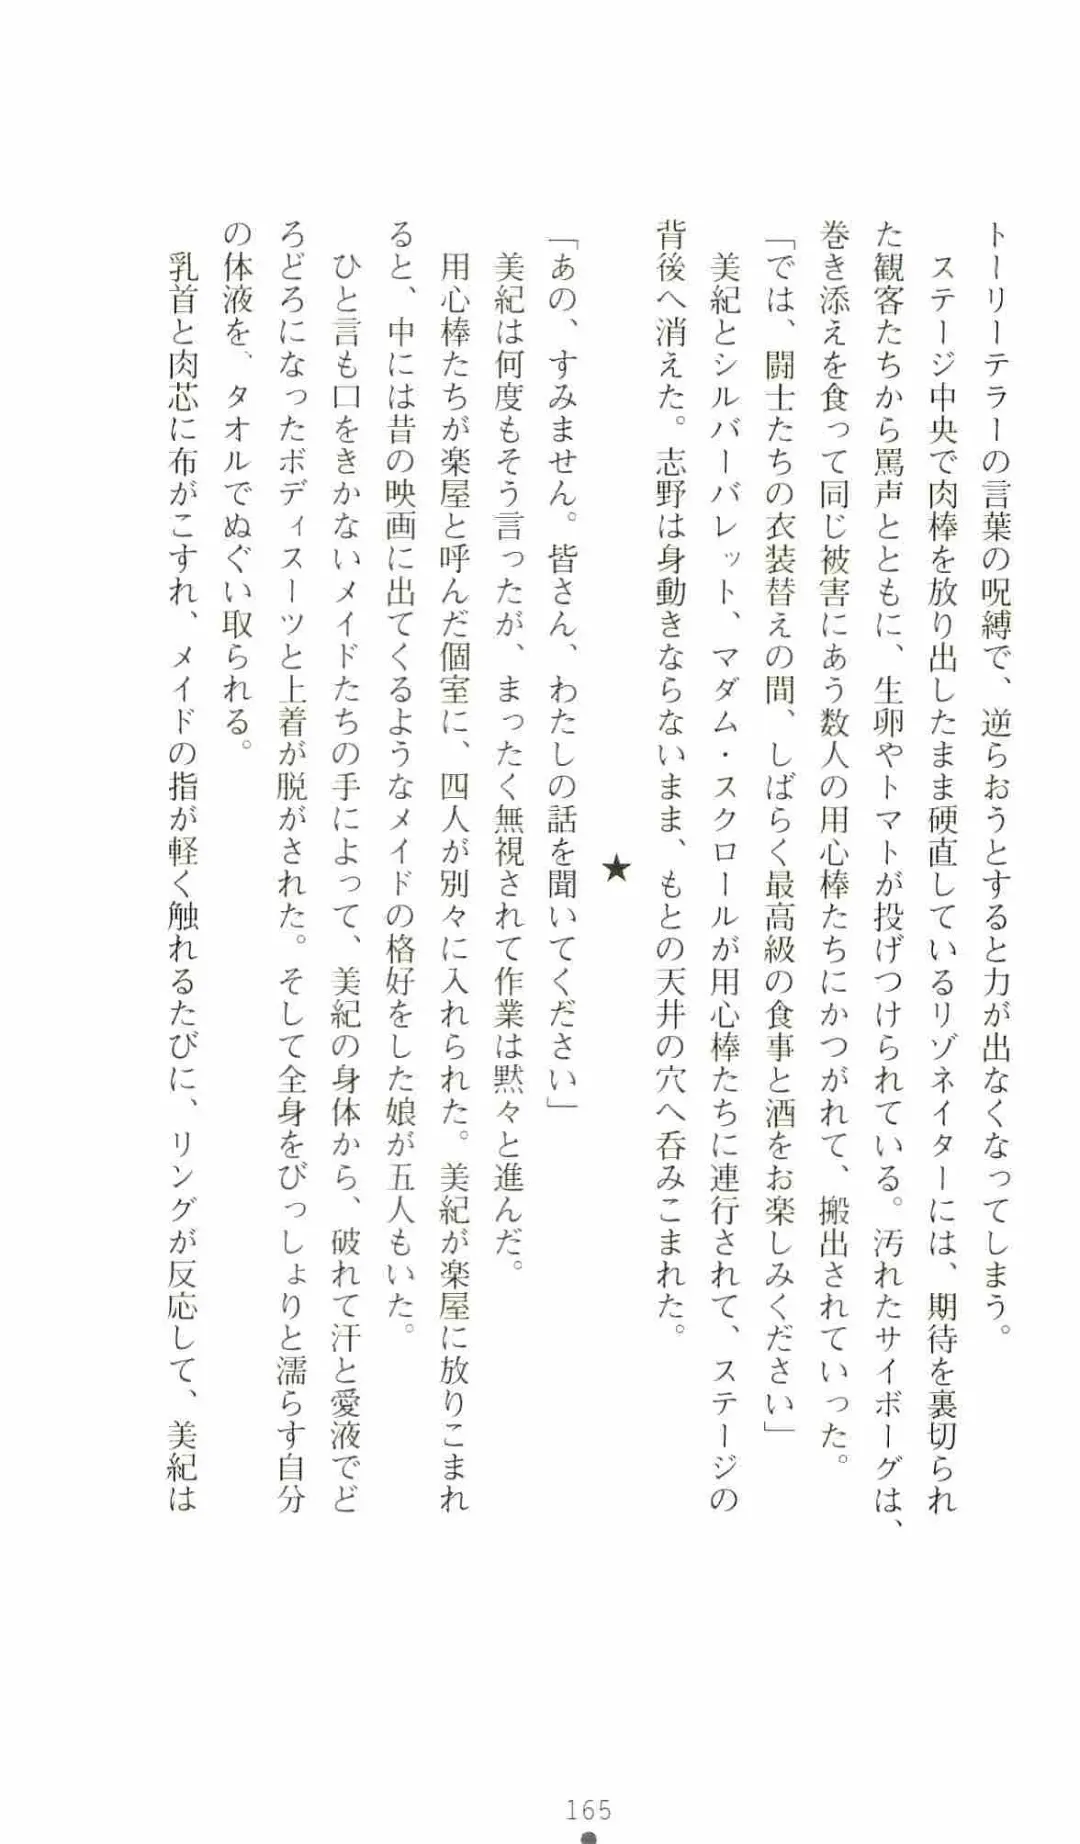 トーリーテラーの言葉の呪縛で、逆らおうとすると力が出なくなってしまう。
ステージ中央で肉棒を放り出したまま硬直しているリゾネイターには、期待を裏切られ
た観客たちから罵声とともに、生卵やトマトが投げつけられている。汚れたサイボーグは、
巻き添えを食って同じ被害にあう数人の用心棒たちにかつがれて、搬出されていった。
「では、闘士たちの衣装替えの間、しばらく最高級の食事と酒をお楽しみください」
美紀とシルバーバレット、マダム・スクロールが用心棒たちに連行されて、ステージの
背後へ消えた。志野は身動きならないまま、もとの天井の穴へ呑みこまれた。
★
「あの、すみません。皆さん、わたしの話を聞いてください」
美紀は何度もそう言ったが、まったく無視されて作業は黙々と進んだ。
用心棒たちが楽屋と呼んだ個室に、四人が別々に入れられた。美紀が楽屋に放りこまれ
ると、中には昔の映画に出てくるようなメイドの格好をした娘が五人もいた。
ひと言も口をきかないメイドたちの手によって、美紀の身体から、破れて汗と愛液でど
ろどろになったボディスーツと上着が脱がされた。そして全身をびっしょりと濡らす自分
の体液を、タオルでぬぐい取られる。
乳首と肉芯に布がこすれ、メイドの指が軽く触れるたびに、リングが反応して、美紀は
165